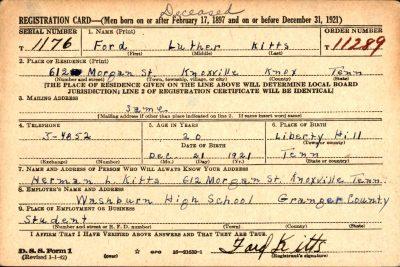 Deceased
REGISTRATION CARD—(Men born on or after February 17, 1897 and on or before December 31, 1921)
SERIAL NUMBER 1. NAME (Print) ORDER NUMBER
T 1176 Ford Luther Kitts T 11289
(First) (Middle) (Last)
2. PLACE OF RESIDENCE (Print)
612 Morgan St. Knoxville Knox Tenn
(Number and street) (Town, township, village, or city) (County) (State)
[THE PLACE OF RESIDENCE GIVEN ON THE LINE ABOVE WILL DETERMINE LOCAL BOARD
JURISDICTION; LINE 2 OF REGISTRATION CERTIFICATE WILL BE IDENTICAL]
3. MAILING ADDRESS
Same
(Mailing address if other than place indicated on line 2. If same insert word same)
4. TELEPHONE 5. AGE IN YEARS 6. PLACE OF BIRTH
3-4852 20 Liberty Hill
DATE OF BIRTH (Town or county)
Dec. 21 1921 Tenn
(Exchange) (Number) (Mo.) (Day) (Yr.) (State or country)
7. NAME AND ADDRESS OF PERSON WHO WILL ALWAYS KNOW YOUR ADDRESS
Herman L. Kitts 612 Morgan St. Knoxville Tenn.
8. EMPLOYER'S NAME AND ADDRESS
Washburn High School Granger County
9. PLACE OF EMPLOYMENT OR BUSINESS
Student
(Number and street or R. F. D. number) (Town) (County) (State)
I AFFIRM THAT I HAVE VERIFIED ABOVE ANSWERS AND THAT THEY ARE TRUE.
D. S. S. Form 1 Ford Kitts
(Revised 1-1-42) (over) (Registrant's signature)